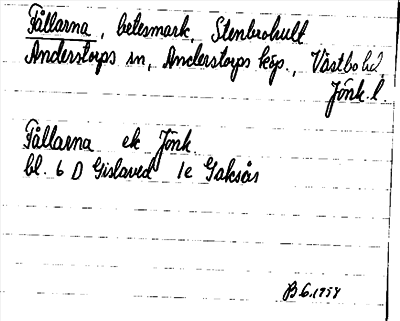 Fållarna, betesmark, Stenbrohult
Anderstorps sn, Anderstorps köp., Västbo hd
Jönk. l.
Fållarna ek Jönk
bl. 6 D Gislaved 1e Gaksås
B 6. 1958